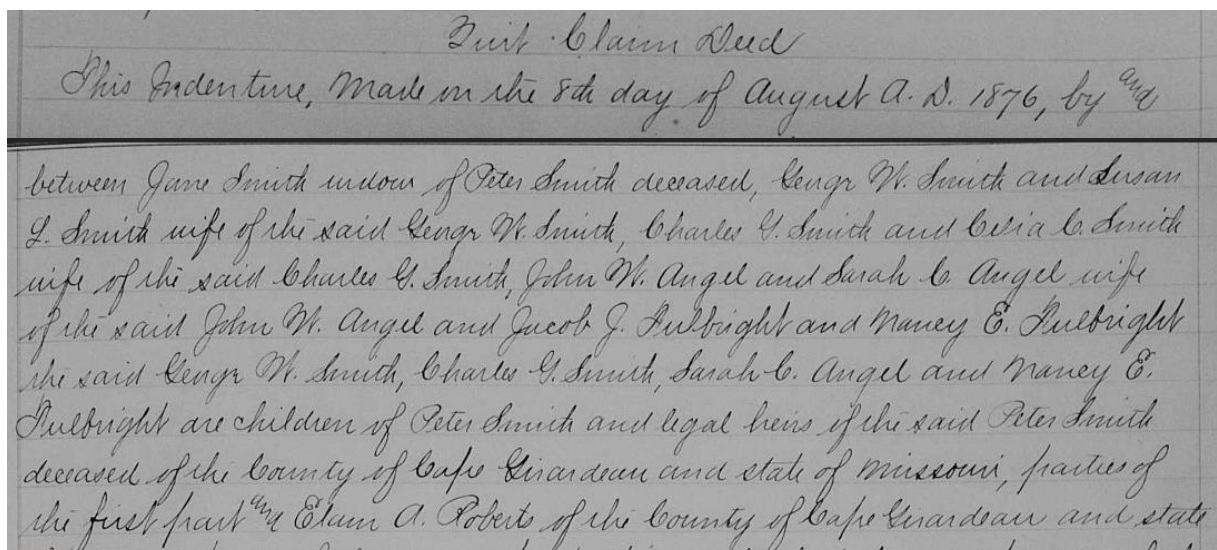 Quit Claim Deed
This Indenture, Made on the 8th day of August A. D. 1876, by and
between Jane Smith widow of Peter Smith deceased, George W. Smith and Susan
L. Smith wife of the said George W. Smith, Charles G. Smith and Celia C. Smith
wife of the said Charles G. Smith, John W. Angel and Sarah C. Angel wife
of the said John W. Angel and Jacob J. Fulbright and Nancy E. Fulbright
the said George W. Smith, Charles G. Smith, Sarah C. Angel and Nancy E.
Fulbright are children of Peter Smith and legal heirs of the said Peter Smith
deceased of the County of Cape Girardeau and state of Missouri, parties of
the first part and Elam A. Roberts of the County of Cape Girardeau and state